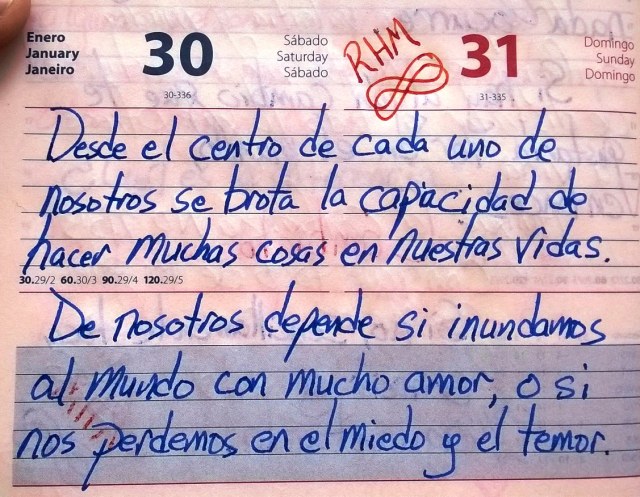 Enero
January
Janeiro
30
30-336
Sábado
Saturday
Sábado
RHM
31
31-335
Domingo
Sunday
Domingo
Desde el centro de cada uno de
nosotros se brota la capacidad de
hacer muchas cosas en nuestras vidas.
30.29/2 60.30/3 90.29/4 120.29/5
De nosotros depende si inundamos
al mundo con mucho amor, o si
nos perdemos en el miedo y el temor.